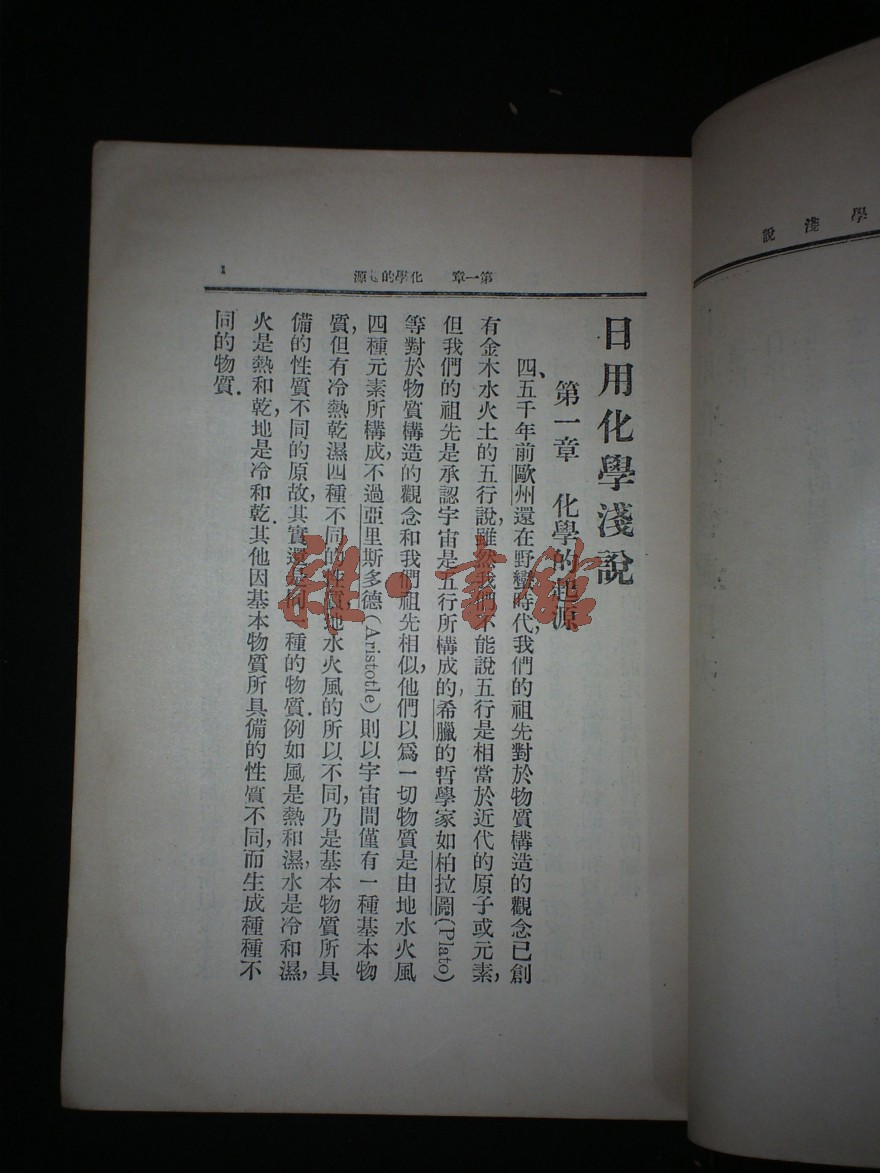 學淺說
第一章 化學的起源
1
日用化學淺說
第一章 化學的起源
四、五千年前歐州還在野蠻時代,我們的祖先對於物質構造的觀念已創
有金木水火土的五行說,雖然我們不能說五行是相當於近代的原子或元素,
但我們的祖先是承認宇宙是五行所構成的,希臘的哲學家如柏拉圖(Plato)
等對於物質構造的觀念和我們祖先相似,他們以爲一切物質是由地水火風
四種元素所構成,不過亞里斯多德(Aristotle)則以宇宙間僅有一種基本物
質,但有冷熱乾濕四種不同的性質,地水火風的所以不同,乃是基本物質所具
備的性質不同的原故,其實還是同一種的物質.例如風是熱和濕,水是冷和濕,
火是熱和乾,地是冷和乾.其他因基本物質所具備的性質不同,而生成種種不
同的物質.
雜·書館